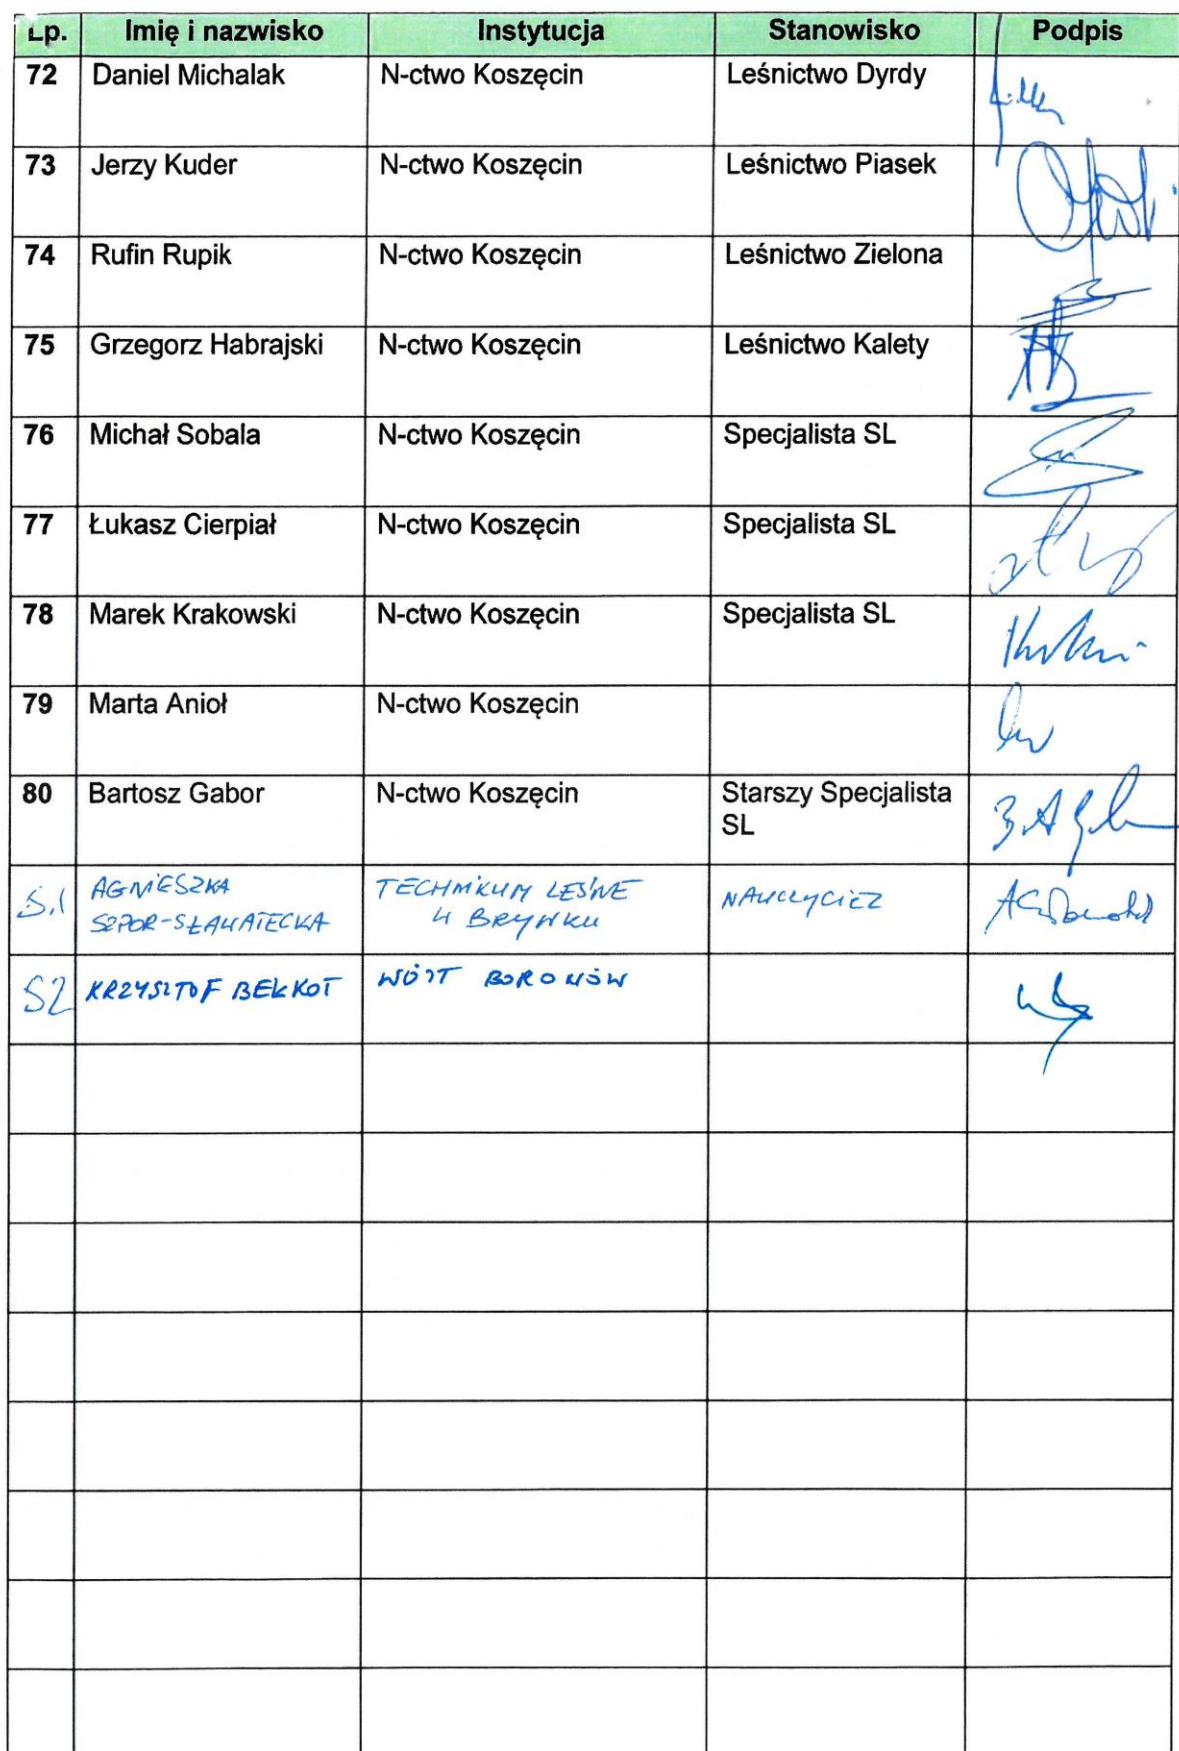 Lp. Imię i nazwisko Instytucja Stanowisko Podpis
72 Daniel Michalak N-ctwo Koszęcin Leśnictwo Dyrdy
73 Jerzy Kuder N-ctwo Koszęcin Leśnictwo Piasek
74 Rufin Rupik N-ctwo Koszęcin Leśnictwo Zielona
75 Grzegorz Habrajski N-ctwo Koszęcin Leśnictwo Kalety
76 Michał Sobala N-ctwo Koszęcin Specjalista SL
77 Łukasz Cierpiał N-ctwo Koszęcin Specjalista SL
78 Marek Krakowski N-ctwo Koszęcin Specjalista SL
79 Marta Anioł N-ctwo Koszęcin
80 Bartosz Gabor N-ctwo Koszęcin Starszy Specjalista
SL
S.1 AGNIESZKA TECHNIKUM LEŚNE NAUCZYCIEL
SZPOR-SŁAWATECKA W BRYNKU
S2 KRZYSZTOF BEŁKOT WÓJT BORONÓW